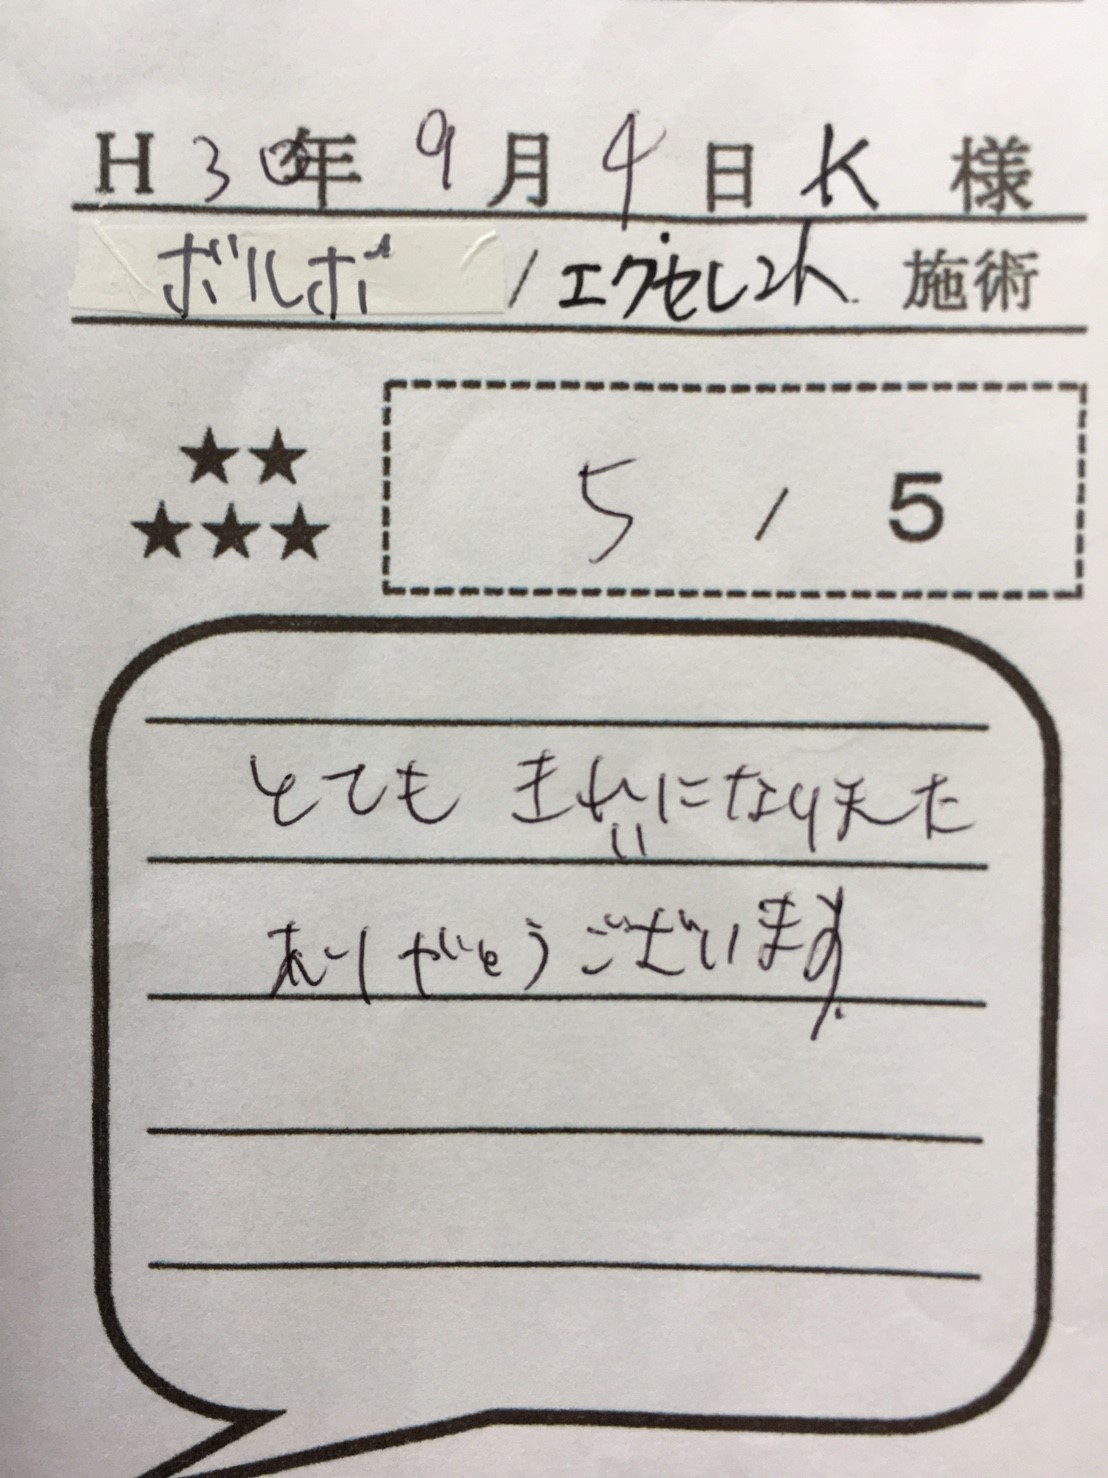 H30年 9月 4日 K 様
ボルボ / エクセレント 施術
★★
★★★
5 / 5
とても きれいになりました
ありがとうございます.